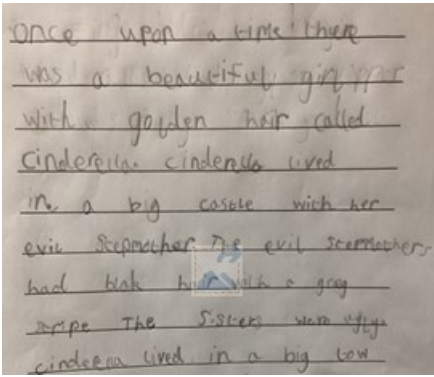 once upon a time there
was a beautiful
with goulden hair called
cinderella. cinderella lived
in a big castle with her
evil stepmother The evil stepmothers
had blak hair with a gray
stripe The Sisters were ugly.
cindeena lived in a big tow